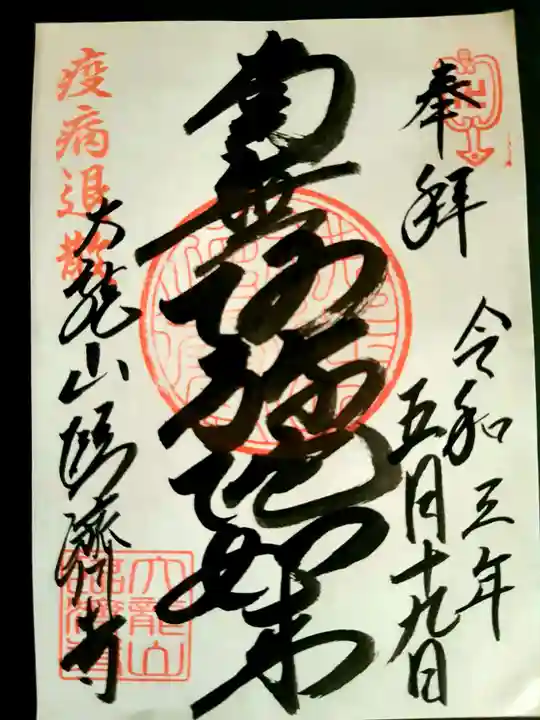 奉拝
令和三年
五月十九日
南無阿弥陀如来
疫病退散
大龍山臨済寺
大龍山
臨済寺